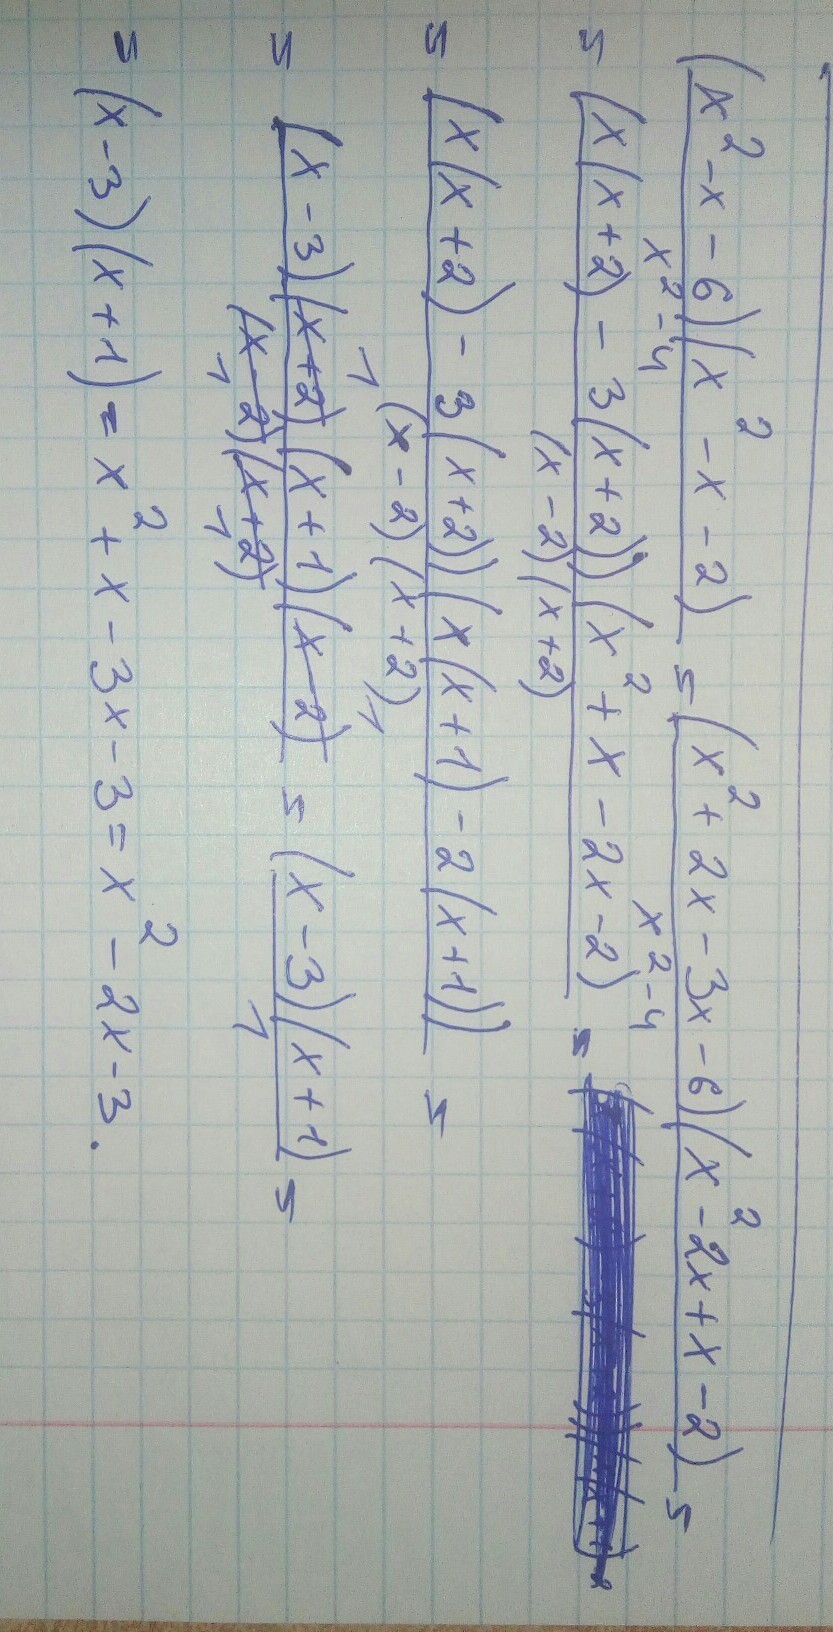 (x² - x - 6)(x² - x - 2) / x² - 4 = (x² + 2x - 3x - 6)(x² - 2x + x - 2) / x² - 4 =
= (x(x + 2) - 3(x + 2))(x² + x - 2x - 2) / (x - 2)(x + 2) =
= (x(x + 2) - 3(x + 2))(x(x + 1) - 2(x + 1)) / (x - 2)(x + 2) =
= (x - 3)(x + 2)(x + 1)(x - 2) / (x - 2)(x + 2) = (x - 3)(x + 1) / 1 =
= (x - 3)(x + 1) = x² + x - 3x - 3 = x² - 2x - 3.